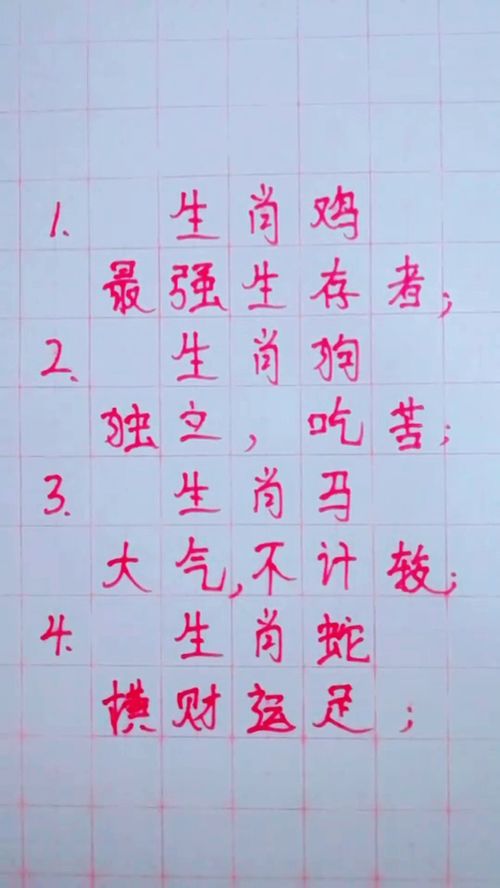 1. 生肖鸡
最强生存者;
2. 生肖狗
独立, 吃苦;
3. 生肖马
大气,不计较;
4. 生肖蛇
横财运足;